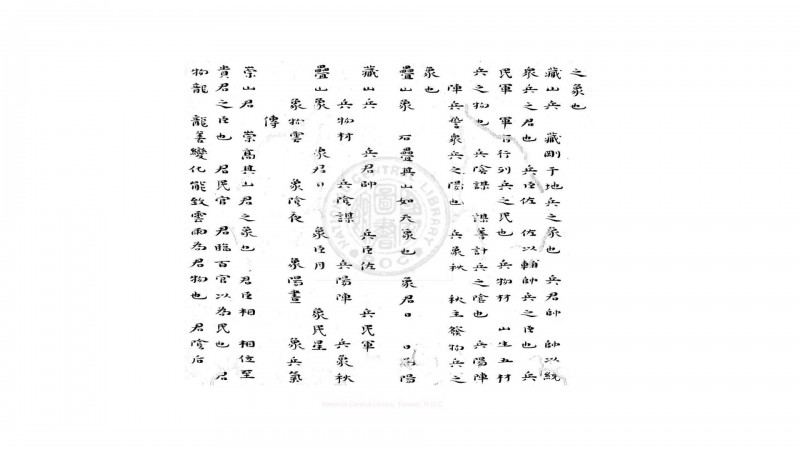 之象也
藏山兵　藏剛于地兵之象也　兵君帥　帥以統
衆兵之君也　兵臣佐　佐以輔帥兵之臣也　兵
民軍　軍旅行列兵之民也　兵物材　山生五材
兵之物也　兵陰謀　謀籌計兵之陰也　兵陽陣
陣兵誓衆兵之陽也　兵象秋　秋主發物兵之
象也
疊山象　石疊與山如天象也　象君日　日爲陽
藏山兵　兵君帥　兵臣佐　兵民軍
兵物材　兵陰謀　兵陽陣　兵象秋
疊山象　象君日　象臣月　象民星
象物雲　象陰夜　象陽晝　象兵氣
傳
崇山君　崇高與山君之象也　君臣相　相位至
貴君之臣也　君民官　君臨百官以為民也　君
物龍　龍善變化能致雲雨為君物也　君陰后
NATIONAL CENTRAL LIBRARY